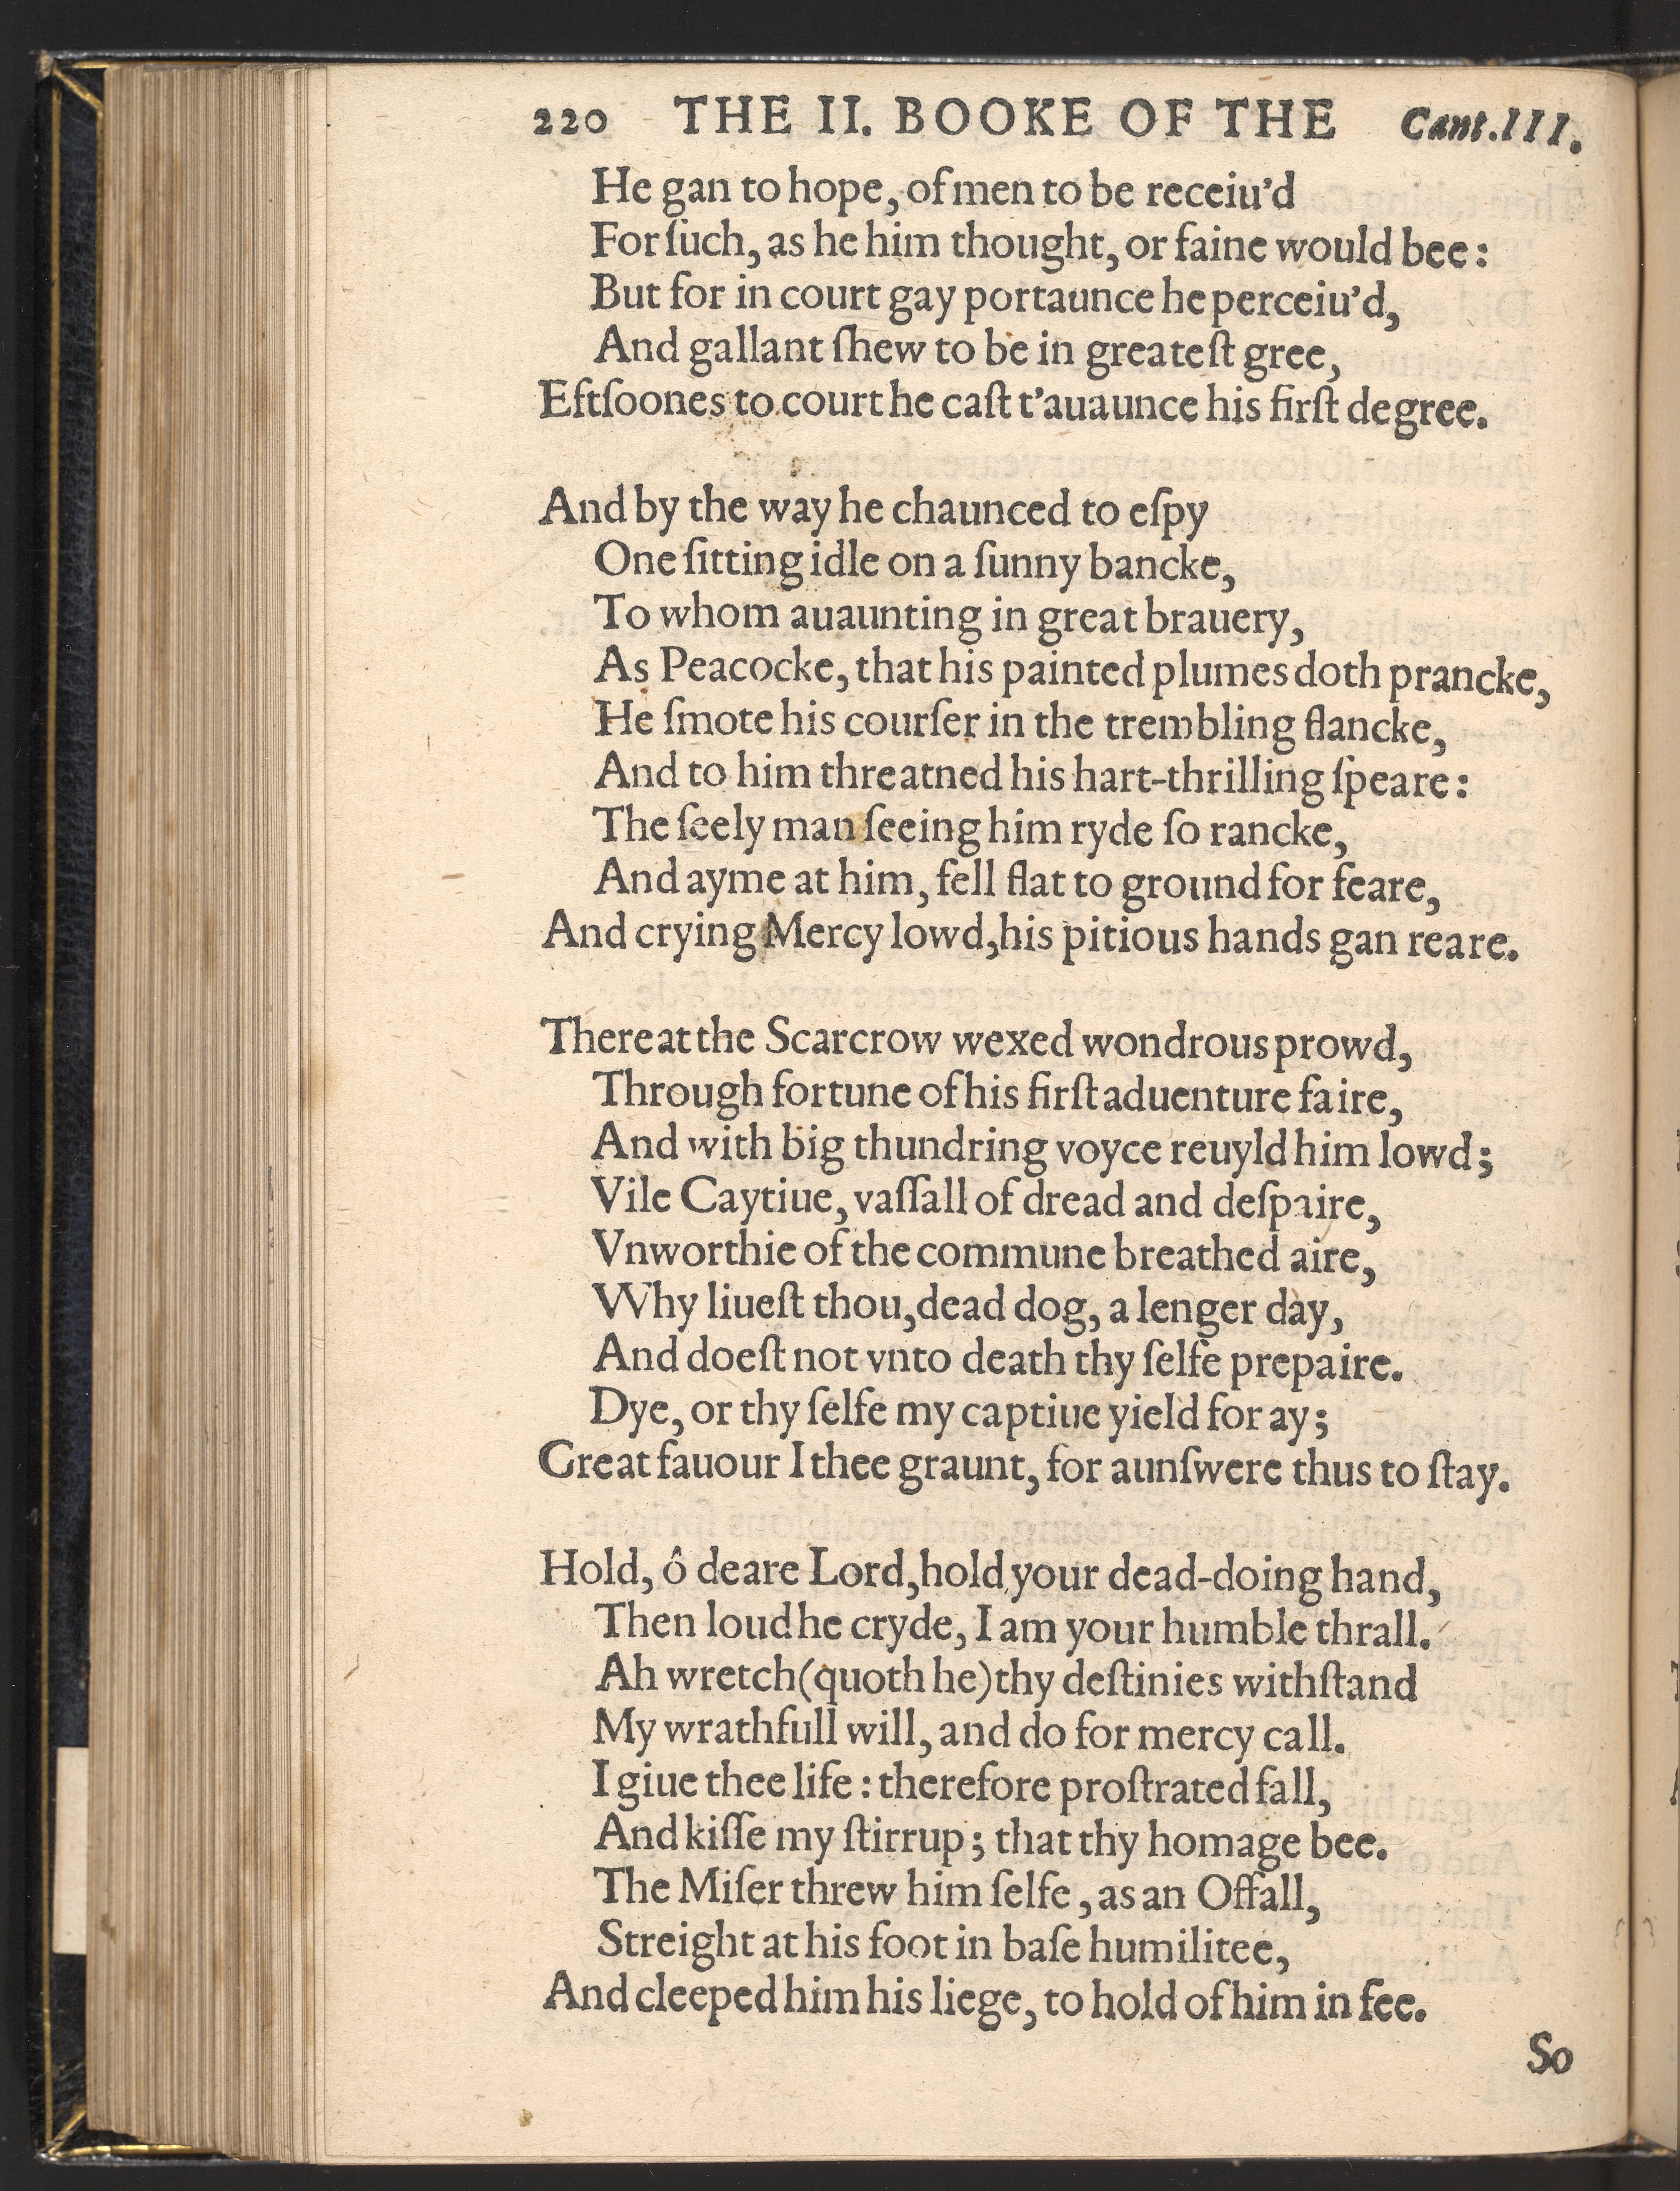 220 THE II. BOOKE OF THE Cant.III.
He gan to hope, of men to be receiu'd
For ſuch, as he him thought, or faine would bee:
But for in court gay portaunce he perceiu'd,
And gallant ſhew to be in greateſt gree,
Eftſoones to court he caſt t'auaunce his firſt degree.
And by the way he chaunced to eſpy
One ſitting idle on a ſunny bancke,
To whom auaunting in great brauery,
As Peacocke, that his painted plumes doth prancke,
He ſmote his courſer in the trembling flancke,
And to him threatned his hart-thrilling ſpeare:
The ſeely man ſeeing him ryde ſo rancke,
And ayme at him, fell flat to ground for feare,
And crying Mercy lowd, his pitious hands gan reare.
Thereat the Scarcrow wexed wondrous prowd,
Through fortune of his firſt aduenture faire,
And with big thundring voyce reuyld him lowd;
Vile Caytiue, vaſſall of dread and deſpaire,
Vnworthie of the commune breathed aire,
Why liueſt thou, dead dog, a lenger day,
And doeſt not vnto death thy ſelfe prepaire.
Dye, or thy ſelfe my captiue yield for ay;
Great fauour I thee graunt, for aunſwere thus to ſtay.
Hold, ô deare Lord, hold your dead-doing hand,
Then loud he cryde, I am your humble thrall.
Ah wretch (quoth he) thy deſtinies withſtand
My wrathfull will, and do for mercy call.
I giue thee life: therefore proſtrated fall,
And kiſſe my ſtirrup; that thy homage bee.
The Miſer threw him ſelfe, as an Offall,
Streight at his foot in baſe humilitee,
And cleeped him his liege, to hold of him in fee.
So